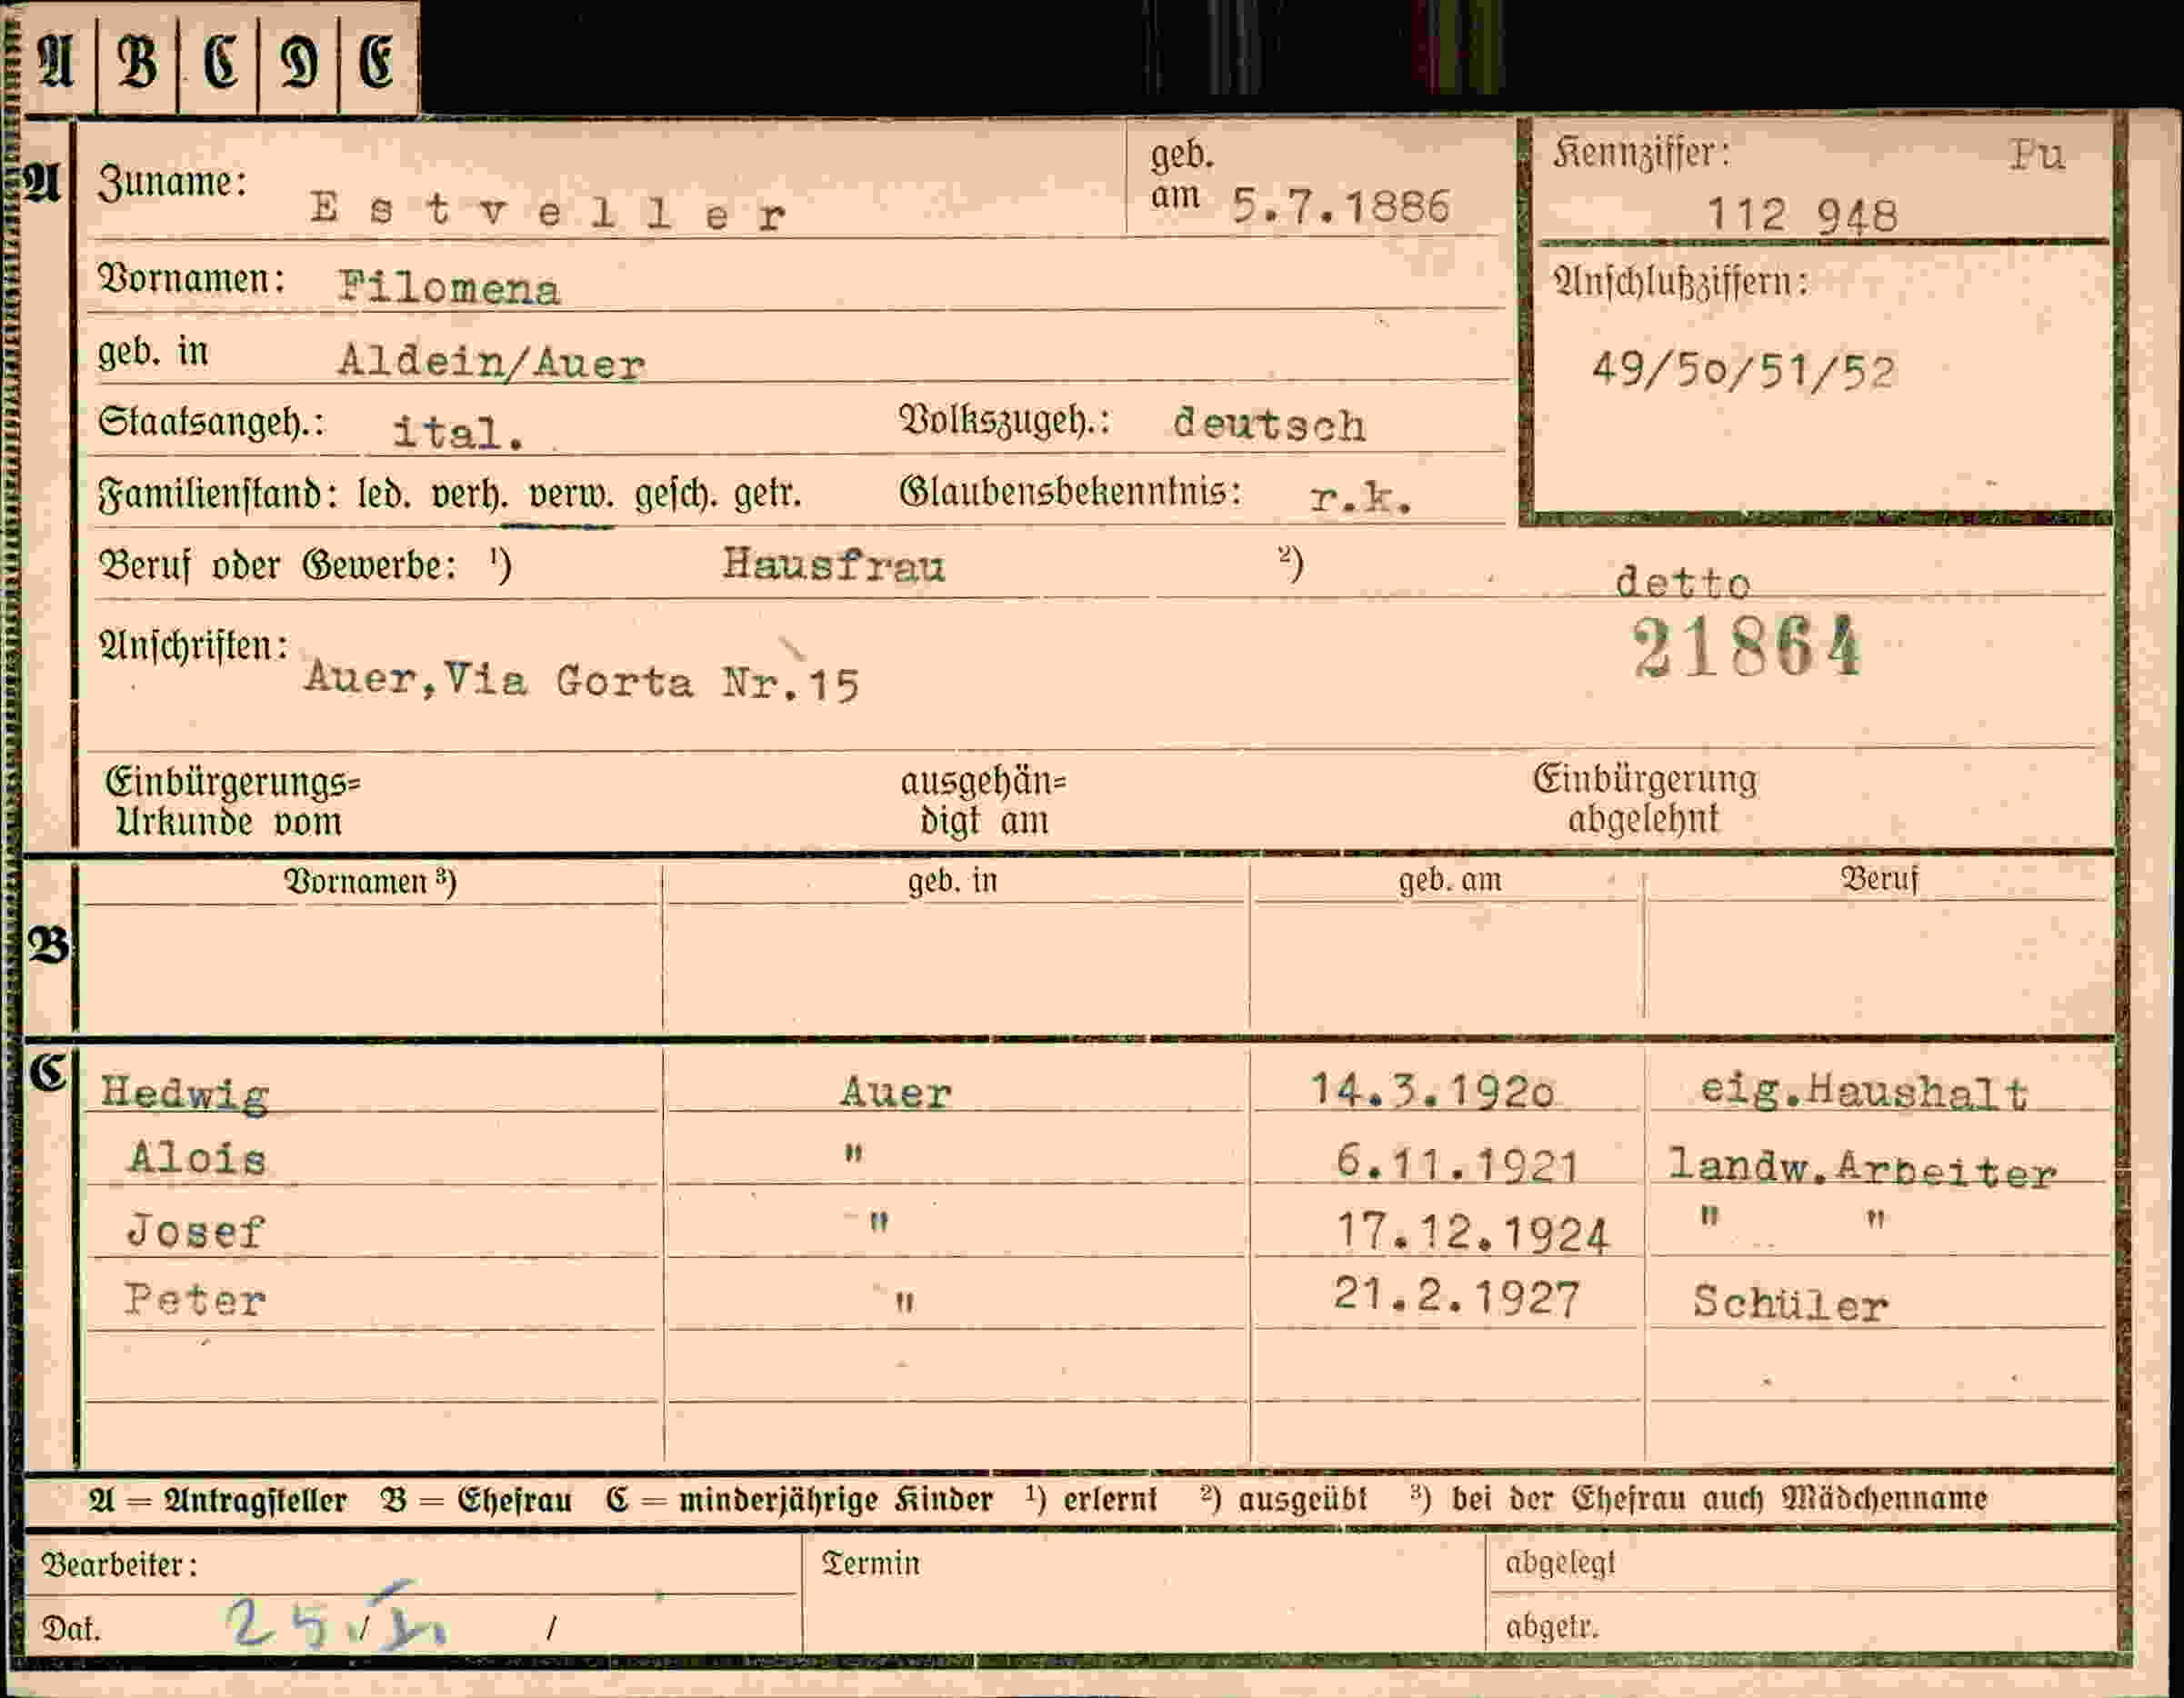 A B C D E
A Zuname: Estveller geb. am 5.7.1886 Kennziffer: Pu
112 948
Vornamen: Filomena Anschlußziffern:
geb. in Aldein/Auer 49/50/51/52
Staatsangeh.: ital. Volkszugeh.: deutsch
Familienstand: led. verh. verw. gesch. getr. Glaubensbekenntnis: r.k.
Beruf oder Gewerbe: ¹) Hausfrau ²) detto
Anschriften: 21864
Auer,Via Gorta Nr.15
Einbürgerungs= ausgehän= Einbürgerung
Urkunde vom digt am abgelehnt
Vornamen ³) geb. in geb. am Beruf
B
C Hedwig Auer 14.3.1920 eig.Haushalt
Alois " 6.11.1921 landw.Arbeiter
Josef " 17.12.1924 " "
Peter " 21.2.1927 Schüler
A = Antragsteller B = Ehefrau C = minderjährige Kinder ¹) erlernt ²) ausgeübt ³) bei der Ehefrau auch Mädchenname
Bearbeiter: Termin abgelegt
Dat. 25 / / abgetr.